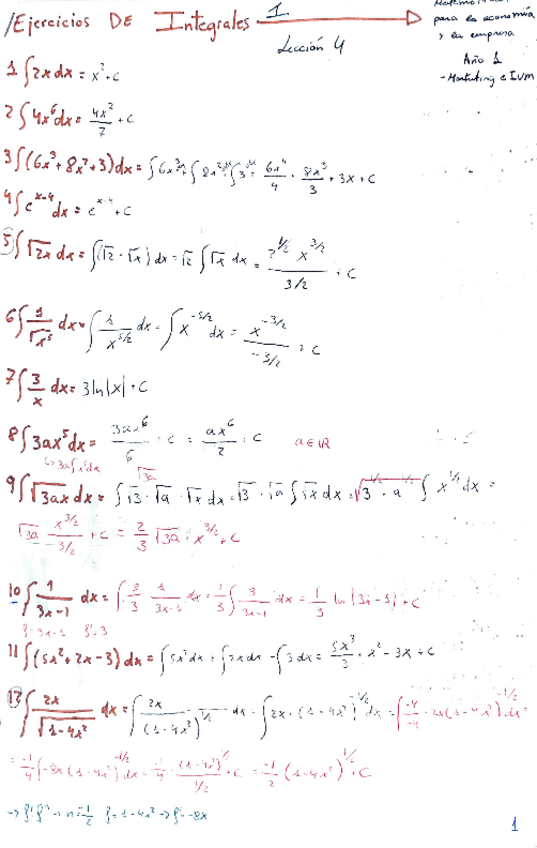 /Ejercicios DE Integrales 1
Lección 4
para la economía
y la empresa
Año 1
- Marketing e IVM
1 ∫2x dx = x² + C
2 ∫4x⁶dx = 4x²/7 + C
3 ∫(6x³+8x²+3)dx = ∫6x³dx + ∫8x²dx + ∫3 = 6x⁴/4 + 8x³/3 + 3x + C
4 ∫e^(x-4) dx = e^(x-4) + C
5 ∫√2x dx = ∫(√2 · √x) dx = √2 ∫√x dx = 2^(1/2) x^(3/2) / 3/2 + C
6 ∫1/√x⁵ dx = ∫1/x^(5/2) dx = ∫x^(-5/2) dx = x^(-3/2) / -3/2 + C
7 ∫3/x dx = 3 ln|x| + C
8 ∫3ax⁵dx = 3ax⁶/6 + C = ax⁶/2 + C a∈ℝ
↳ 3a∫x⁵dx
√3a
9 ∫√3ax dx = ∫√3 · √a · √x dx = √3 · √a ∫√x dx = √3^(1/2) · a^(1/2) ∫ x^(1/2) dx =
√3a x^(3/2) / 3/2 + C = 2/3 √3a · x^(3/2) + C
10 ∫1/(3x-1) dx = ∫3/3 · 1/(3x-1) dx = 1/3 ∫3/(3x-1) dx = 1/3 ln|3x-1| + C
f=3x-1 f'=3
11 ∫(5x²+2x-3) dx = ∫5x²dx + ∫2x dx - ∫3 dx = 5x³/3 + x² - 3x + C
12 ∫2x/√(1-4x²) dx = ∫2x/(1-4x²)^(1/2) dx = ∫2x·(1-4x²)^(-1/2) dx = ∫-4/-4 · 2x(1-4x²)^(-1/2) dx =
= -1/4 ∫-8x(1-4x²)^(-1/2) dx = -1/4 · (1-4x²)^(1/2) / 1/2 + C = -1/2 (1-4x²)^(1/2) + C
→ f'fⁿ → n=-1/2 f=1-4x² → f'=-8x
1